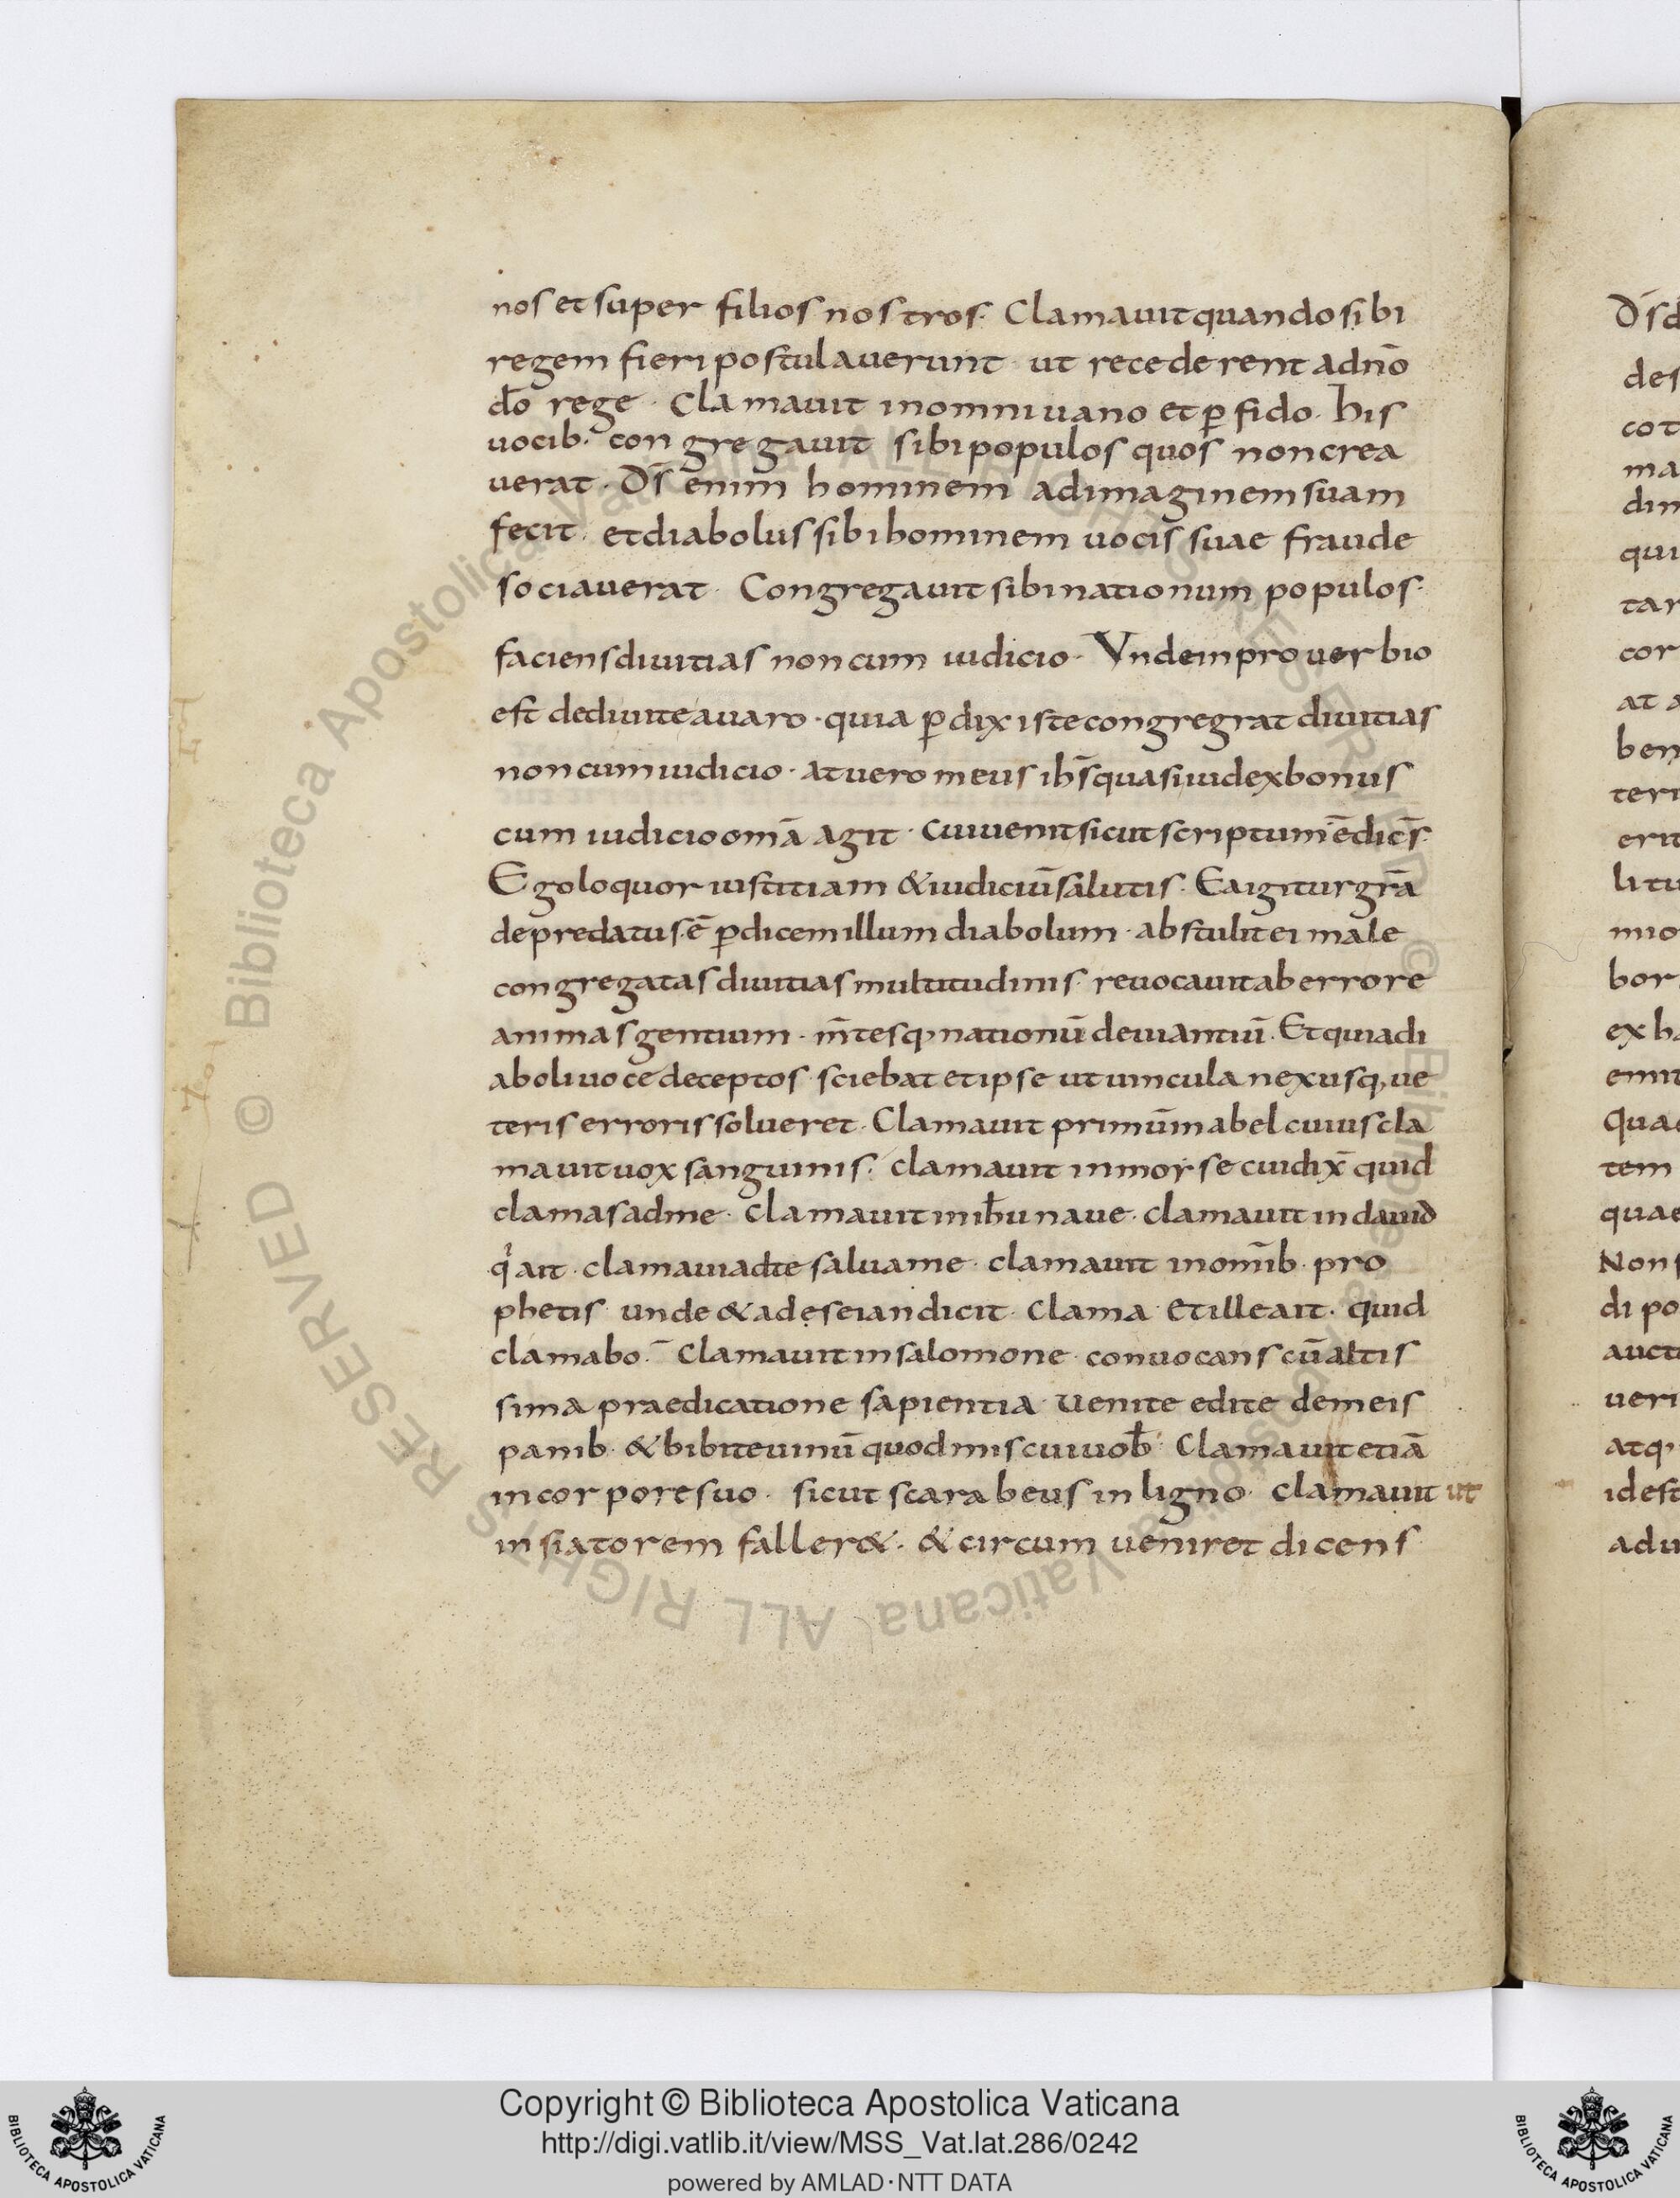 nos et super filios nostros. Clamauit quando sibi
regem fieri postulauerunt ut recederent ad nō
dō rege. Clamauit in omni uano et ꝑfido. his
uocib. congregauit sibi populos quos non crea
uerat. D̄s enim hominem ad imaginem suam
fecit. et diabolus sibi hominem uocis suae fraude
sociauerat. Congregauit sibi nationum populos.
faciens diuitias non cum iudicio. Vnde in prouerbio
est de diuite auaro. quia ꝑdix iste congregrat diuitias
non cum iudicio. at uero meus ih̄s quasi iudex bonus
cum iudicio omā agit. cui uenit sicut scriptum ē dicēs.
Ego loquor iustitiam & iudiciū salutis. Ea igitur grā
depredatus ē ꝑdicem illum diabolum. abstulit ei male
congregatas diuitias multitudinis. reuocauit ab errore
animas gentium. m̄tesq; nationū deuiantiū. Et quia di
aboli uoce deceptos sciebat et ipse ut uincula nexusq; ue
teris erroris solueret. Clamauit primū in abel cuius cla
mauit uox sanguinis. clamauit in moyse cui dix̄ quid
clamas ad me. Clamauit in ih̄u naue. clamauit in dauid
qͥ ait. clamaui ad te salua me. clamauit in om̄ib. pro
phetis unde & ad eseian dicit. Clama et ille ait. quid
clamabo. Clamauit in salomone. conuocans cū altis
sima praedicatione sapientia. uenite edite de meis
panib. & bibite uinū quod miscui uob̄. Clamauit etiā
in corpore suo. sicut scarabeus in ligno. clamauit ut
insiatorem faller&. & circum ueniret dicens
D̄s d
des
cot
ma
din
qui
tar
cor
at a
ben
teri
erit
litu
mio
bor
ex ba
emit
Qua
tem
quae
Non s
di po
aucto
ueri
atq;
id est
adu
Copyright © Biblioteca Apostolica Vaticana
http://digi.vatlib.it/view/MSS_Vat.lat.286/0242
powered by AMLAD·NTT DATA
BIBLIOTECA APOSTOLICA VATICANA
BIBLIOTECA APOSTOLICA VATICANA